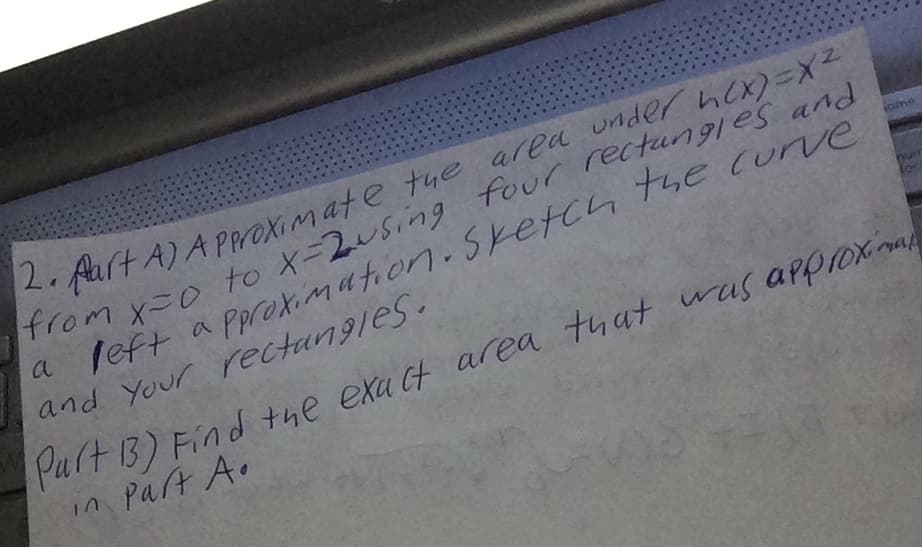 2. Part A) Approximate the area under h(x)=x²
from x=0 to x=2 using four rectangles and
a left approximation. Sketch the curve
and your rectangles.
Part B) Find the exact area that was
in part A.